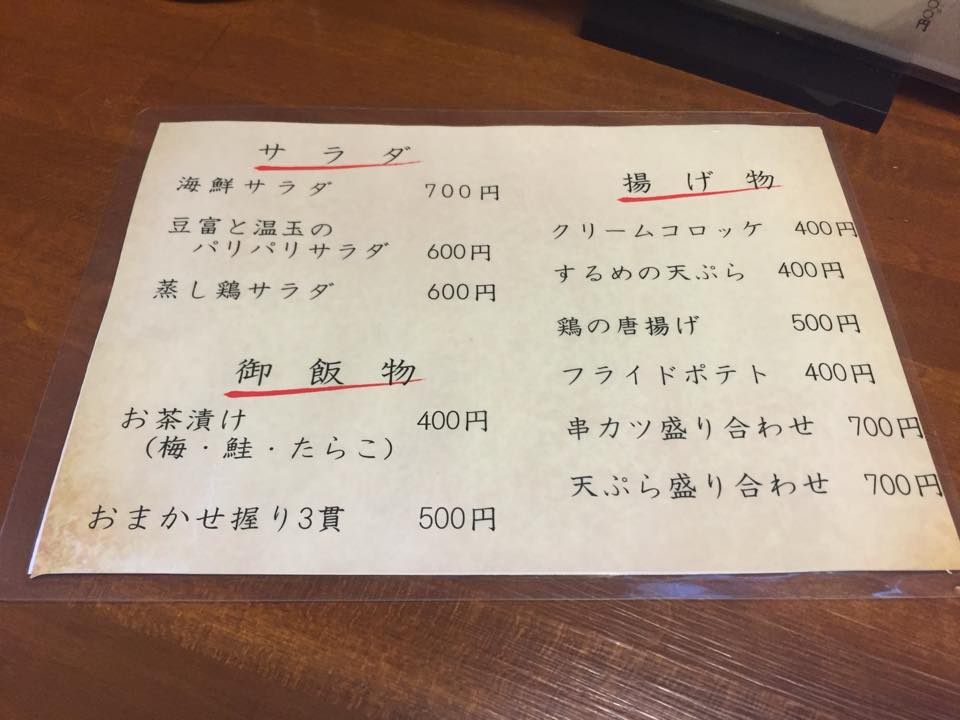 サラダ
海鮮サラダ 700円
豆富と温玉の
パリパリサラダ 600円
蒸し鶏サラダ 600円
御飯物
お茶漬け 400円
(梅・鮭・たらこ)
おまかせ握り3貫 500円
揚げ物
クリームコロッケ 400円
するめの天ぷら 400円
鶏の唐揚げ 500円
フライドポテト 400円
串カツ盛り合わせ 700円
天ぷら盛り合わせ 700円